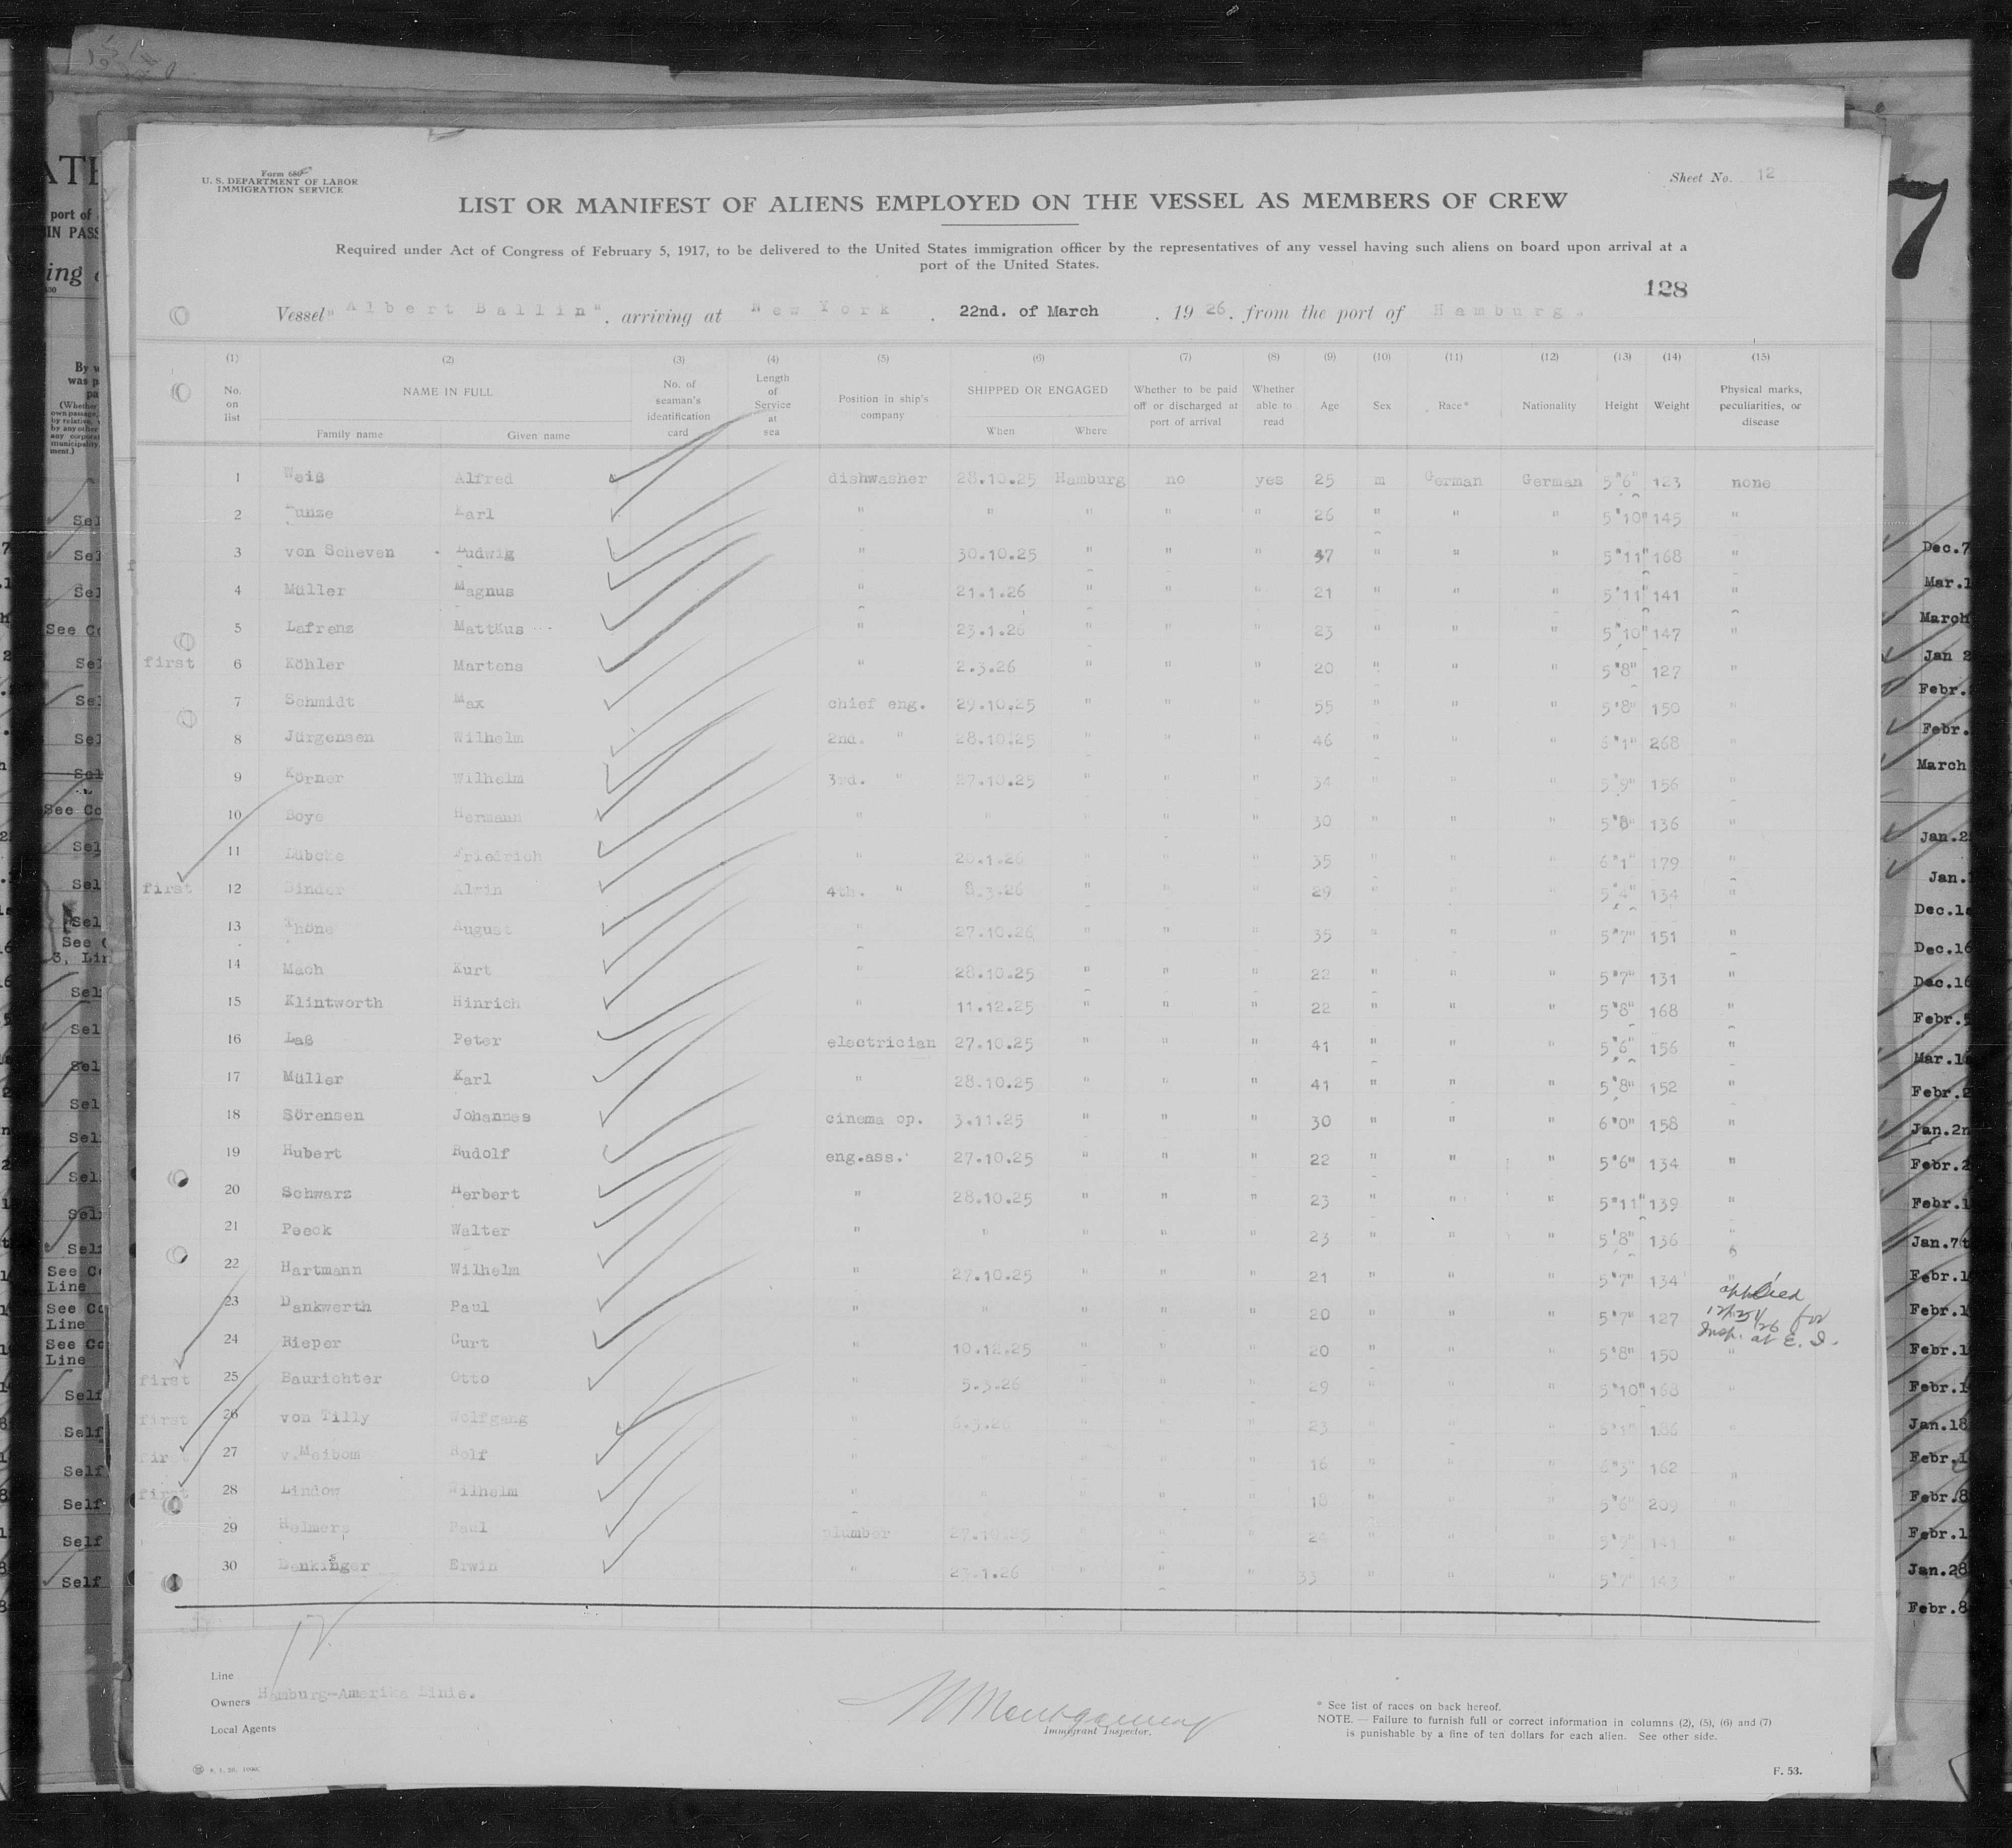 Form 680
U. S. DEPARTMENT OF LABOR
IMMIGRATION SERVICE
Sheet No. 12
LIST OR MANIFEST OF ALIENS EMPLOYED ON THE VESSEL AS MEMBERS OF CREW
Required under Act of Congress of February 5, 1917, to be delivered to the United States immigration officer by the representatives of any vessel having such aliens on board upon arrival at a
port of the United States.
128
Vessel "Albert Ballin", arriving at New York, 22nd. of March, 1926, from the port of Hamburg.
(1) (2) (3) (4) (5) (6) (7) (8) (9) (10) (11) (12) (13) (14) (15)
No. on list NAME IN FULL No. of seaman's identification card Length of Service at sea Position in ship's company SHIPPED OR ENGAGED Whether to be paid off or discharged at port of arrival Whether able to read Age Sex Race* Nationality Height Weight Physical marks, peculiarities, or disease
Family name Given name When Where
1 Weiß Alfred dishwasher 28.10.25 Hamburg no yes 25 m German German 5"6" 123 none
2 Kunze Karl " " " " " 26 " " " 5"10" 145 "
3 von Scheven Ludwig " 30.10.25 " " " 47 " " " 5"11" 168 "
4 Müller Magnus " 21.1.26 " " " 21 " " " 5'11" 141 "
5 Lafrenz Mattäus " 23.1.26 " " " 23 " " " 5"10" 147 "
first 6 Köhler Martens " 2.3.26 " " " 20 " " " 5"8" 127 "
7 Schmidt Max chief eng. 29.10.25 " " " 55 " " " 5'8" 150 "
8 Jürgensen Wilhelm 2nd. " 28.10.25 " " " 46 " " " 6"1" 268 "
9 Körner Wilhelm 3rd. " 27.10.25 " " " 34 " " " 5"9" 156 "
10 Boye Hermann " " " " " 30 " " " 5"8" 136 "
11 Lübcke Friedrich " 20.1.26 " " " 35 " " " 6"1" 179 "
first 12 Binder Alwin 4th. " 8.3.26 " " " 29 " " " 5"4" 134 "
13 Thöne August " 27.10.26 " " " 35 " " " 5"7" 151 "
14 Mach Kurt " 28.10.25 " " " 22 " " " 5"7" 131 "
15 Klintworth Hinrich " 11.12.25 " " " 22 " " " 5"8" 168 "
16 Laß Peter electrician 27.10.25 " " " 41 " " " 5"6" 156 "
17 Müller Karl " 28.10.25 " " " 41 " " " 5"8" 152 "
18 Sörensen Johannes cinema op. 3.11.25 " " " 30 " " " 6"0" 158 "
19 Hubert Rudolf eng.ass. 27.10.25 " " " 22 " " " 5"6" 134 "
20 Schwarz Herbert " 28.10.25 " " " 23 " " " 5"11" 139 "
21 Peeck Walter " " " " " 23 " " " 5'8" 136 "
22 Hartmann Wilhelm " 27.10.25 " " " 21 " " " 5"7" 134 "
23 Dankwerth Paul " " " " " 20 " " " 5"7" 127 applied
for Insp. at E. I.
24 Rieper Curt " 10.12.25 " " " 20 " " " 5"8" 150 "
first 25 Baurichter Otto " 5.3.26 " " " 29 " " " 5"10" 168 "
first 26 von Tilly Wolfgang " 6.3.26 " " " 23 " " " 6"1" 186 "
first 27 v.Meibom Rolf " " " " " 16 " " " 6"3" 162 "
first 28 Lindow Wilhelm " " " " " 18 " " " 5"6" 209 "
29 Helmers Paul plumber 27.10.25 " " " 24 " " " 5"9" 141 "
30 Denkinger Erwin " 23.1.26 " " " 33 " " " 5"7" 143 "
Line
Owners Hamburg-Amerika Linie.
Local Agents
Montgomery
Immigrant Inspector.
* See list of races on back hereof.
NOTE. — Failure to furnish full or correct information in columns (2), (5), (6) and (7)
is punishable by a fine of ten dollars for each alien. See other side.
F. 53.